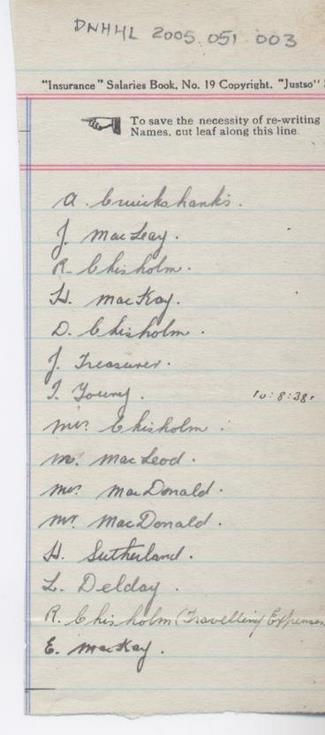 DNHHL 2005.051.003
"Insurance" Salaries Book, No. 19 Copyright, "Justso"
To save the necessity of re-writing
Names, cut leaf along this line
A. Cruickshanks.
J. MacLeay.
R. Chisholm.
H. MacKay.
D. Chisholm.
J. Treasurer.
T. Young. 10:8:38.
Mrs. Chisholm.
M. MacLeod.
Mrs. MacDonald.
Mr. MacDonald.
H. Sutherland.
L. Delday.
R. Chisholm (Travelling Expenses
E. MacKay.